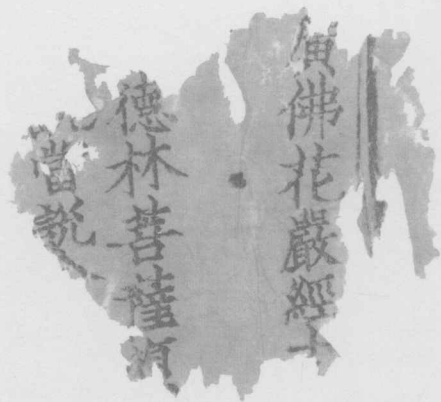 廣佛花嚴經十
德林菩薩頌
當說